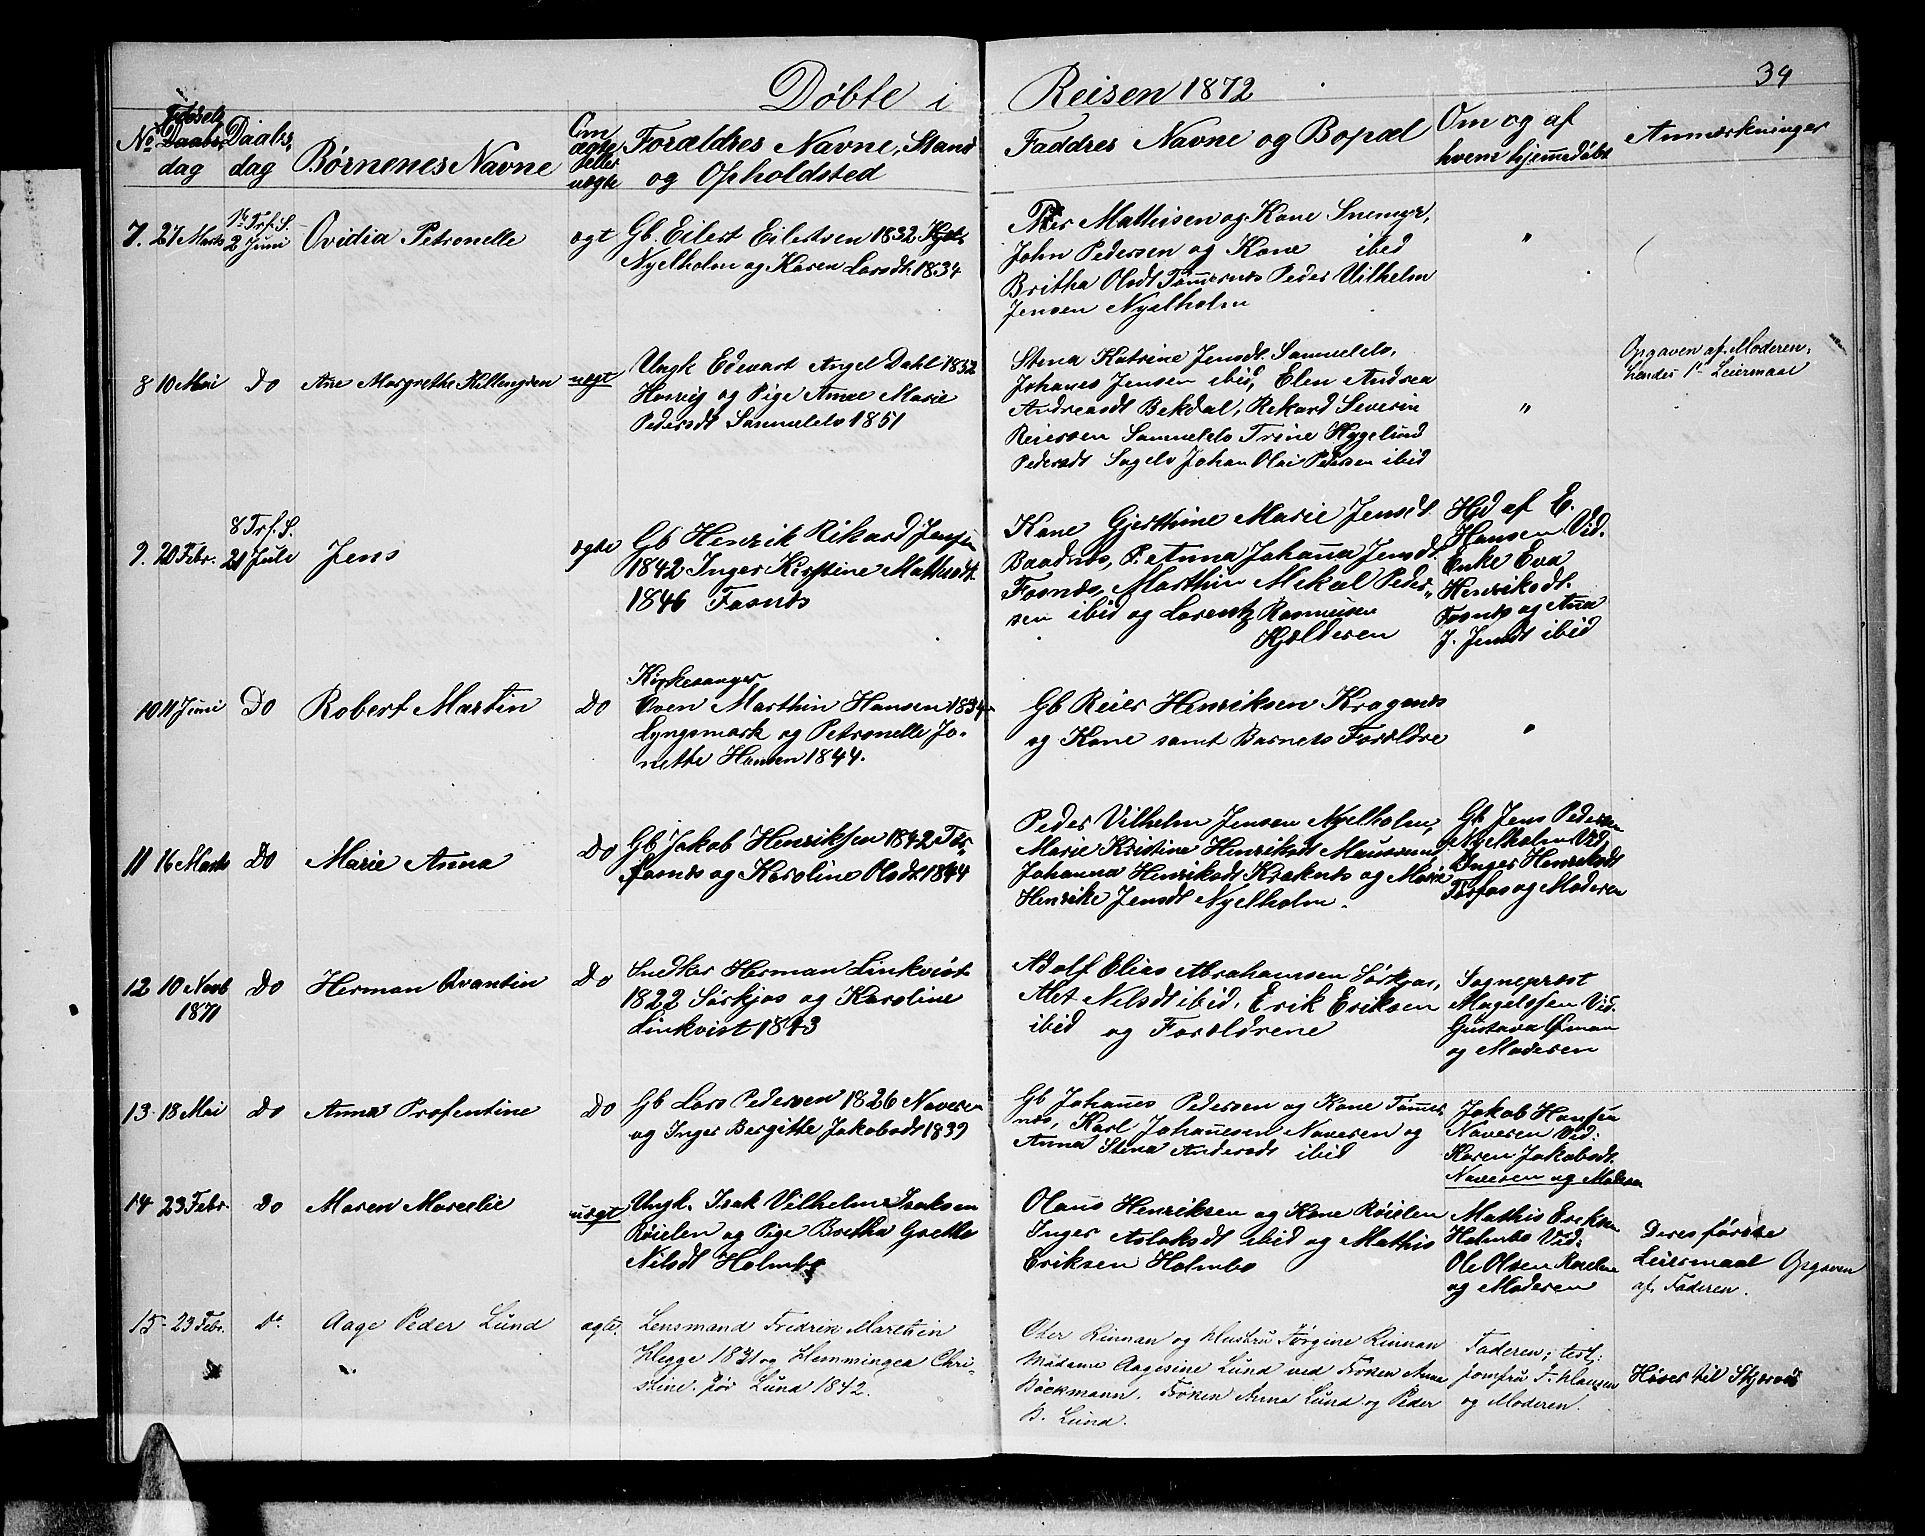 Døbte i Reisen 1872
39
No
Fødsels
Daabs,
dag
Daabs,
dag
Børnenes Navne
Om
ægte
eller
uægte
Forældres Navne, Stand
og Opholdsted
Faddres Navne og Bopæl
Om og af
hvem hjemmedøbt
Anmærkninger
7. 27 Marts
1ste Trf. S.
2 Juni
Ovidia Petronelle
ægt
Gb. Eilert Eilertsen 1832
Nyelholm og Karen Larsdt. 1834
Per Mathisen og Kone Snemyr,
John Pedersen og Kone ibid
Britha Olsdt Tømernes Peder Vilhelm
Jensen Nyelholm
"
8 10 Mai
Do
Ane Margrethe Killengren
uegt
Ungk Edevart Angel Dahl 1832
Havvig og Pige Anne Marie
Pedersdt Samuelels 1851
Stena Katrine Jensdt. Samuelels,
Johanes Jensen ibid, Elen Andrea
Andreasdt Bekdal, Rekard Severin
Reiersen Samuelels Trine Hygelund
Pedersdt Sagels Johan Olai Pedersen ibid
"
Opgaven af Moderen,
hendes 1ste Leiermaal
9. 20 Febr.
8 Trf. S.
21 Jule
Jens
ægte
Gb Henrik Rikard Jensen
1842 Inger Kirstine Mathisdt.
1846 Fosnes
Kone Gjerthine Marie Jensdt.
Baadnes, P. Anna Johanna Jensdt.
Fosnes, Marthin Mekal Peder-
sen ibid og Lorentz Rasmusen
Kjelderen
Hjd af E.
Hansen Vid.
Enke Eva
Henriksdt.
Fosnes og Ana
J. Jensdt ibid
10 11 Juni
Do
Robert Martin
Do
Kirkesanger
Oven Marthin Hansen 1834
Lyngsmark og Petronelle Jo-
nette Hansen 1844.
Gb Reier Henriksen Kragenes
og Kone samt Barnets Forældre
"
11 16 Marts
Do
Marie Anna
Do
Gb Jakob Henriksen 1842 Tør-
fosnes og Karoline Olsdt. 1844
Peder Vilhelm Jensen Nyelholm,
Marie Kristine Henriksdt Maursund,
Johanna Henriksdt Kraknes og Marie
Henrike Jensdt Nyelholm.
Gb Jens Pedersen
Nyelholm Vid
Inger Henriksdt
Tørfos og Moderen
12 10 Novb
1871
Do
Herman Qvantin
Do
Snedker Herman Linkvist
1822 Sørkjos og Karoline
Linkvist 1843
Adolf Elias Abrahamsen Sørkjos,
Alet Nilsdt ibid, Erik Eriksen
ibid og Forældrene
Sognepræst
Magelssen Vid.
Gustava Øman
og Moderen
13 18 Mai
Do
Anna Profentine
Do
Gb Lars Pedersen 1826 Naveren
og Inger Bergitte Jakobsdt 1839
Gb Johanes Pedersen og Kone Tømer-
nes, Karl Johannesen Naveren og
Anna Stena Andersdt ibid
Jakob Hansen
Naveren Vid:
Karen Jakobsdt.
Naveren og Moderen
14 23 Febr
Do
Maren Marselie
uægt
Ungk. Isak Vilhelm Isaksen
Røielen og Pige Bretha Grethe
Nilsdt Holmbo
Olaus Henriksen og Kone Røielen
Inger Aslaksdt ibid og Mathis
Eriksen Holmbo
Mathis Eriksen
Holmbo Vid:
Ole Olsen Røielen
og Moderen
Deres første
Leiermaal Opgaven
af Faderen.
15 23 Febr.
Do
Aage Peder Lund
ægte.
Lensmand Fredrik Marthin
Hegge 1831 og Hemmingea Chri-
stine. før Lund 1842.
Oter Rinnan og Hustru Jørgine Rinnan
Madame Aagesine Lund ved Frøken Anna
Bøckmann, Frøken Anna Lund og Peder
B. Lund.
Faderen; test:
Jomfru F. Clausen
og Moderen.
Hører til Skjervø